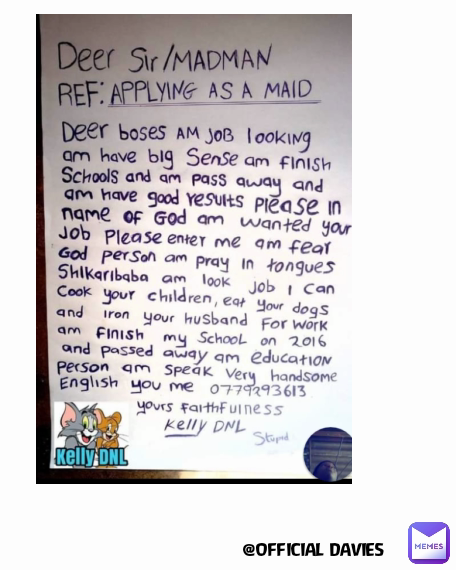 Deer Sir/MADMAN
REF: APPLYING AS A MAID
Deer boses AM JOB looking
am have big Sense am finish
Schools and am pass away and
am have good results Please in
name of God am wanted your
Job Please enter me am fear
God person am pray in tongues
Shikaribaba am look job I can
Cook your children, eat your dogs
and iron your husband For work
am Finish my School on 2016
and passed away am education
person am speak Very handsome
English you me 0779293613
yours faithfulness
Kelly DNL
Stupid
Kelly DNL
@OFFICIAL DAVIES
MEMES